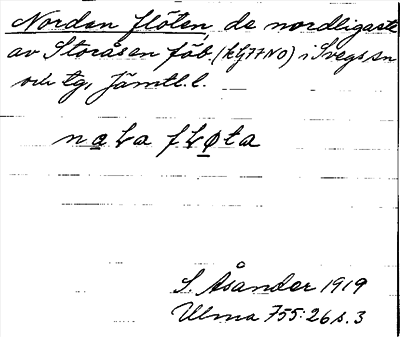 Nordan flöten, de nordligaste
av Storåsen fäb. (kfj77NO) i Svegs sn
och tg, Jämtl. l.
S. Åsander 1919
Ulma 755:26 s. 3